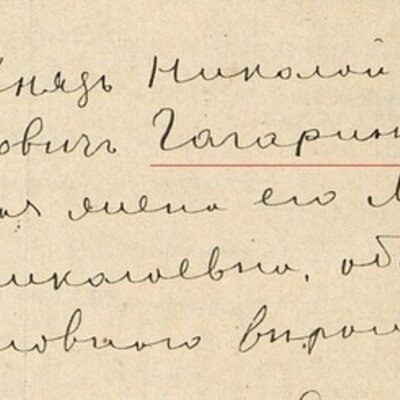 Князь Николай
ович Гагарин
ая жена его М
николаевна, об
ловного вѣрои